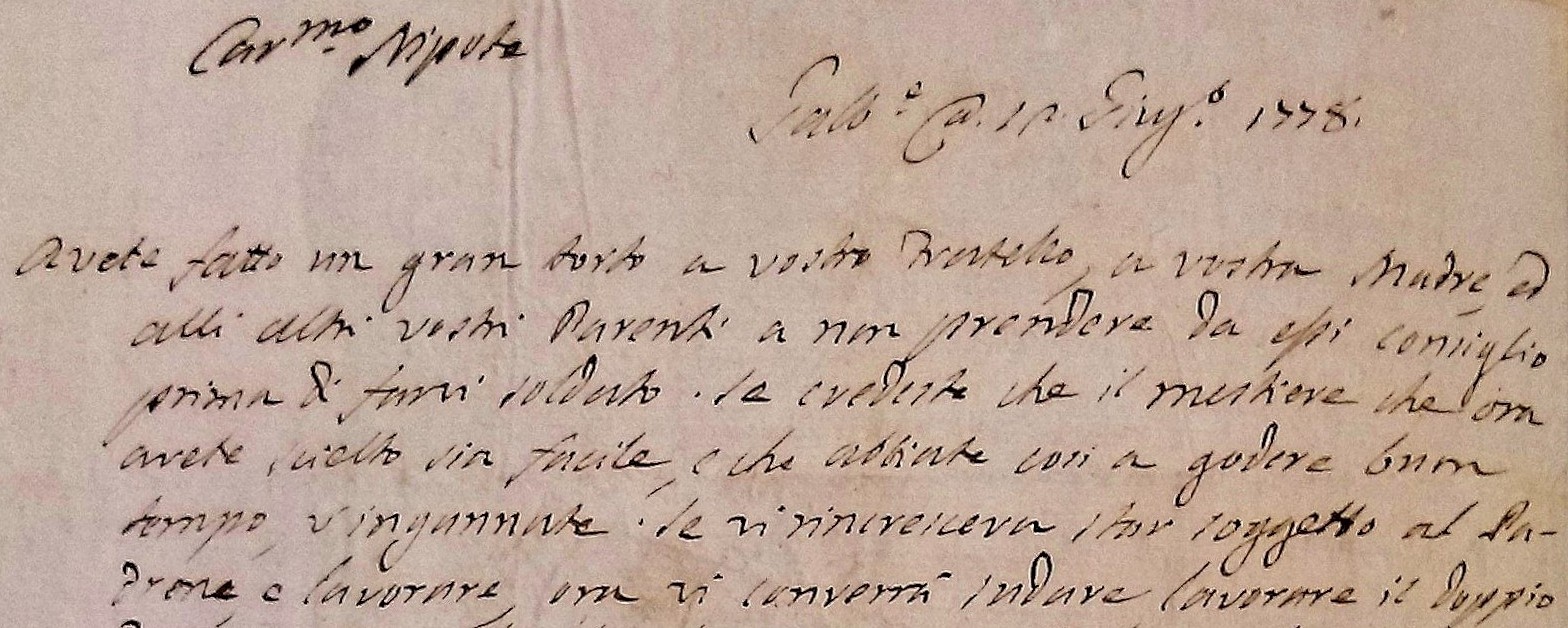 Car.mo Nipote
Giug.o 1778.
Avete fatto un gran torto a vostro Fratello, a vostra Madre, ed
alli altri vostri Parenti a non prendere da essi consiglio
prima di farvi soldato. Se credeste che il mestiere che ora
avete scielto sia facile, e che abbiate così a godere buon
tempo, v'ingannate. Se vi rincresceva star soggetto al Pa-
drone, e lavorare, ora vi converrà sudare lavorare il doppio